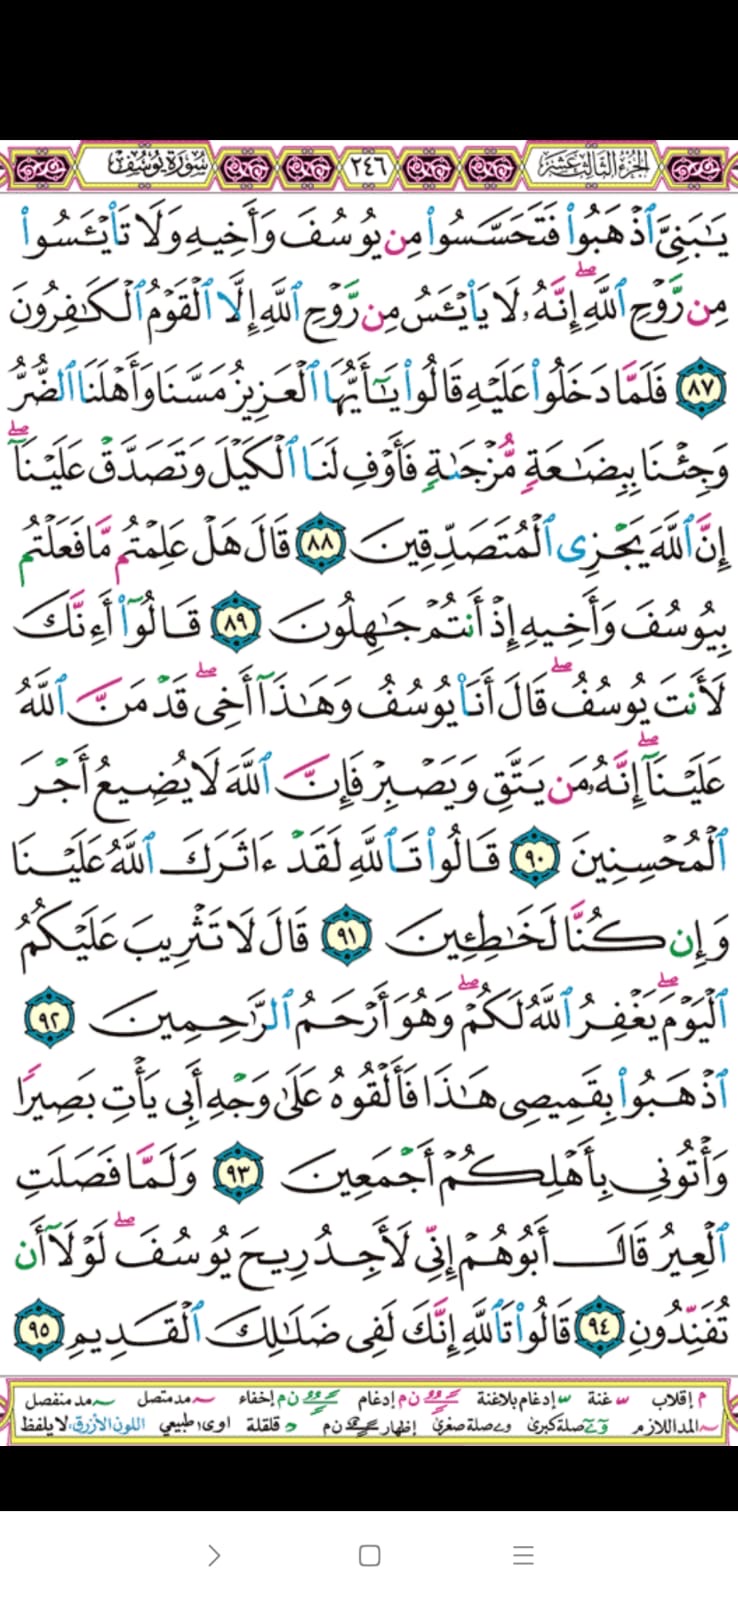 الجزء الثالث عشر ٢٤٦ سورة يوسف
يَـٰبَنِىَّ ٱذْهَبُوا۟ فَتَحَسَّسُوا۟ مِن يُوسُفَ وَأَخِيهِ وَلَا تَا۟يْـَٔسُوا۟
مِن رَّوْحِ ٱللَّهِ ۖ إِنَّهُۥ لَا يَا۟يْـَٔسُ مِن رَّوْحِ ٱللَّهِ إِلَّا ٱلْقَوْمُ ٱلْكَـٰفِرُونَ
٨٧ فَلَمَّا دَخَلُوا۟ عَلَيْهِ قَالُوا۟ يَـٰٓأَيُّهَا ٱلْعَزِيزُ مَسَّنَا وَأَهْلَنَا ٱلضُّرُّ
وَجِئْنَا بِبِضَـٰعَةٍ مُّزْجَىٰةٍ فَأَوْفِ لَنَا ٱلْكَيْلَ وَتَصَدَّقْ عَلَيْنَآ ۖ
إِنَّ ٱللَّهَ يَجْزِى ٱلْمُتَصَدِّقِينَ ٨٨ قَالَ هَلْ عَلِمْتُم مَّا فَعَلْتُم
بِيُوسُفَ وَأَخِيهِ إِذْ أَنتُمْ جَـٰهِلُونَ ٨٩ قَالُوٓا۟ أَءِنَّكَ
لَأَنتَ يُوسُفُ ۖ قَالَ أَنَا۠ يُوسُفُ وَهَـٰذَآ أَخِى ۖ قَدْ مَنَّ ٱللَّهُ
عَلَيْنَآ ۖ إِنَّهُۥ مَن يَتَّقِ وَيَصْبِرْ فَإِنَّ ٱللَّهَ لَا يُضِيعُ أَجْرَ
ٱلْمُحْسِنِينَ ٩٠ قَالُوا۟ تَٱللَّهِ لَقَدْ ءَاثَرَكَ ٱللَّهُ عَلَيْنَا
وَإِن كُنَّا لَخَـٰطِـِٔينَ ٩١ قَالَ لَا تَثْرِيبَ عَلَيْكُمُ
ٱلْيَوْمَ ۖ يَغْفِرُ ٱللَّهُ لَكُمْ ۖ وَهُوَ أَرْحَمُ ٱلرَّٰحِمِينَ ٩٢
ٱذْهَبُوا۟ بِقَمِيصِى هَـٰذَا فَأَلْقُوهُ عَلَىٰ وَجْهِ أَبِى يَأْتِ بَصِيرًا
وَأْتُونِى بِأَهْلِكُمْ أَجْمَعِينَ ٩٣ وَلَمَّا فَصَلَتِ
ٱلْعِيرُ قَالَ أَبُوهُمْ إِنِّى لَأَجِدُ رِيحَ يُوسُفَ ۖ لَوْلَآ أَن
تُفَنِّدُونِ ٩٤ قَالُوا۟ تَٱللَّهِ إِنَّكَ لَفِى ضَلَـٰلِكَ ٱلْقَدِيمِ ٩٥
م إقلاب غنة إدغام بلاغنة ن م إدغام ن م إخفاء مد متصل مد منفصل
المد اللازم صلة كبرى صلة صغرى إظهار ن م قلقلة اوى طبيعي اللون الأزرق، لا يلفظ